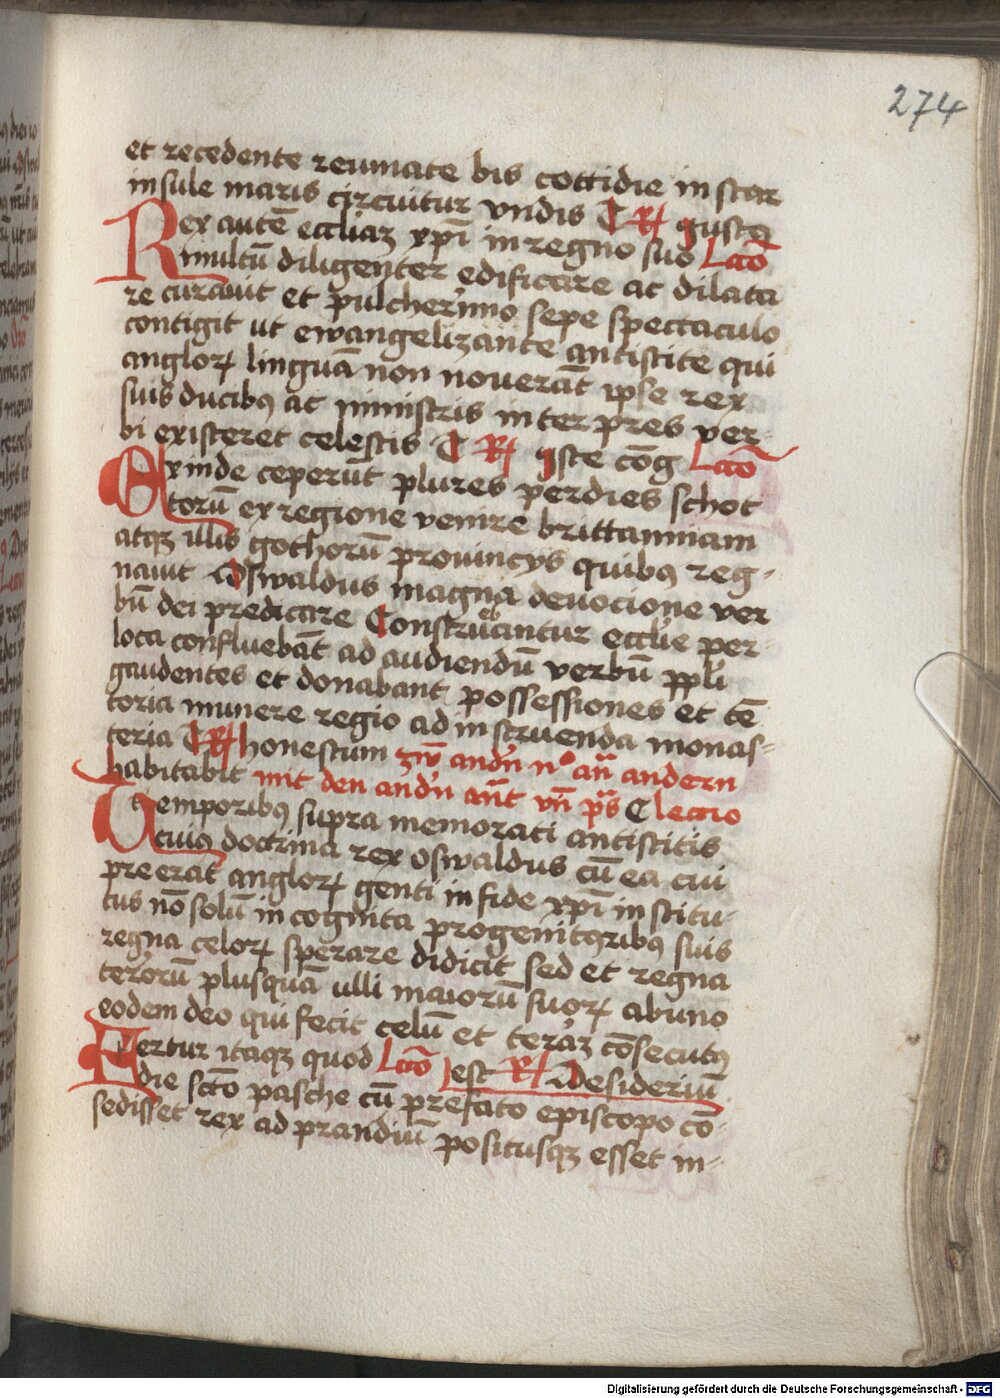 274
et recedente reumate bis cottidie instar
insule maris circuitur vndis ¶ R Iustus
Rex autē eccliaz xpī in regno suo Lcō
multū diligenter edificare ac dilata
re curauit et pulcherrimo sepe spectaculo
contigit ut ewangelizante antistite qui
anglorꝝ linguā non nouerāt ipse rex
suis ducibꝰ ac ministris interpres ver
bi existeret celestis ¶ R Iste cōg Lcō
Exinde ceperūt plures per dies schot
torū ex regione venire brittanniam
atqꝫ illis gothorū prouincys quibꝰ reg-
nauit Oswaldus magna deuocione ver
bū dei predicare Construebantur ecclīe per-
loca confluebāt ad audiendū verbū ppli
gaudentes et donabant possessiones et te
toria munere regio ad instruenda monas-
teria ¶ R honestum zw andn nº an andern
habitabit mit den andn ant vn ps ¶ lectio
Temporibꝰ supra memorati antistitis
cuiꝰ doctrina rex oswaldus cū ea cui
preerat anglorꝝ genti in fide xpī institu-
tus nō solū incognita progenitoribꝰ suis
regna celorꝝ sperare didicit sed et regna
terrorū plusquā ulli maiorū suorꝝ ab uno
eodem deo qui fecit celū et terrāz cōsecutꝰ
Fertur itaqꝫ quod Lcō est R Desideriū
die scto pasche cū prefato episcopo cō-
sedisset rex ad prandiū positusqꝫ esset in-
Digitalisierung gefördert durch die Deutsche Forschungsgemeinschaft - DFG